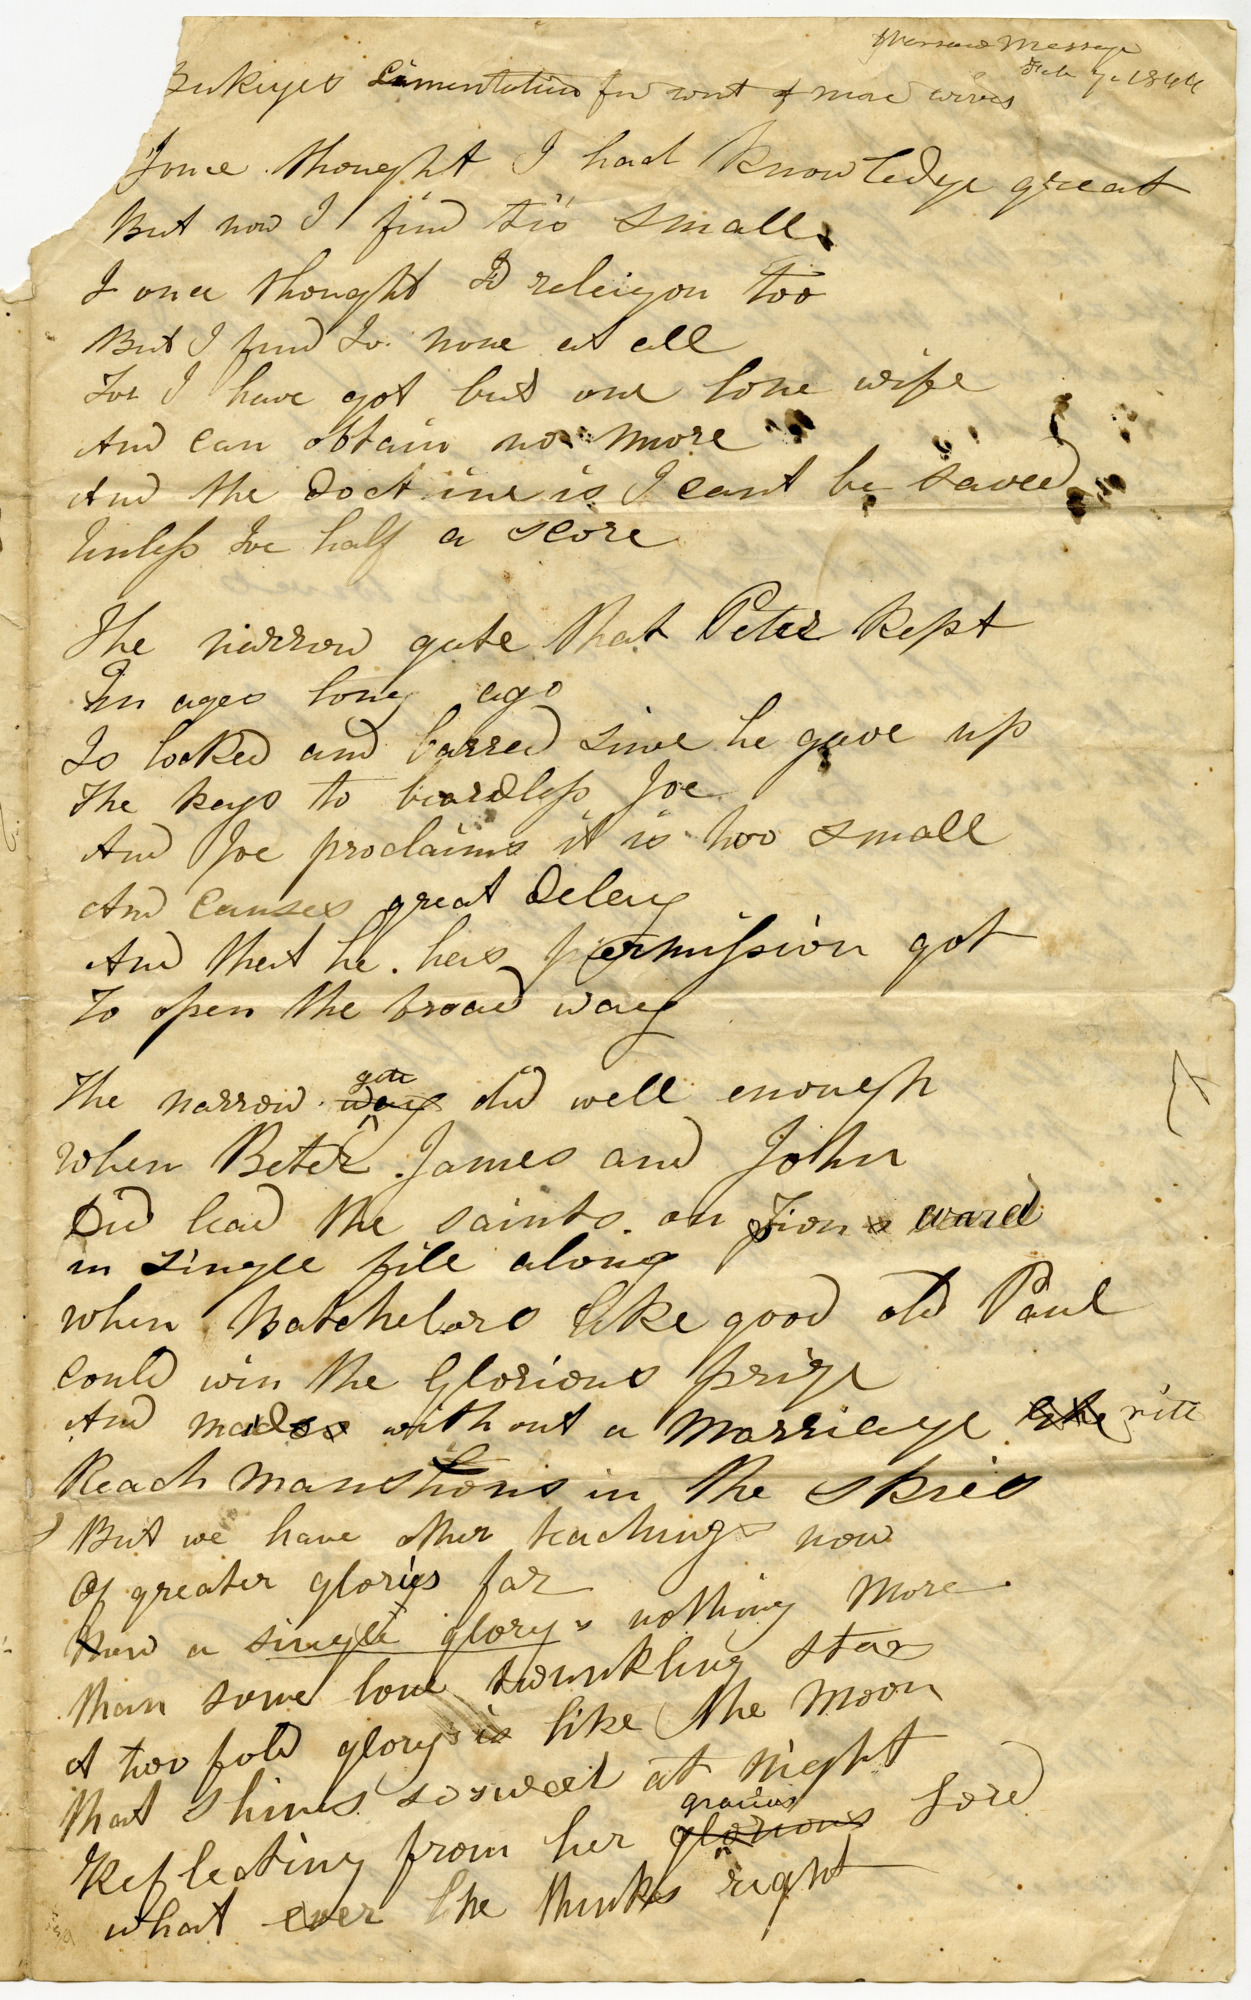 Warsaw Message
Feb 7. 1844
Bukeyes Lamentation for want of more wives
I once thought I had knowledge great
But now I find tis small
I once thought I'd releigon too
But I find Ive none at all
For I have got but one lone wife
And can obtain no more
And the doctrine is I cant be saved
Unless Ive half a score
The narrow gate that Peter kept
In ages long ago
Is locked and barred since he gave up
The keys to beardless Joe
And Joe proclaims it is too small
And causes great delay
And that he has permission got
To open the broad way
The narrow way gate did well enough
When Peter James and John
Did lead the saints on Zion ward
in single file along
When Batchelors like good old Paul
Could win the Glorious prize
And maids without a marriage rite
Reach manstions in the skies
But we have other teachings now
Of greater glories far
How a single glory's nothing more
than some lone twinkling star
A two fold glory is like the moon
that shines so sweet at night
Reflecting from her glorious gracious lord
what ever he thinks right